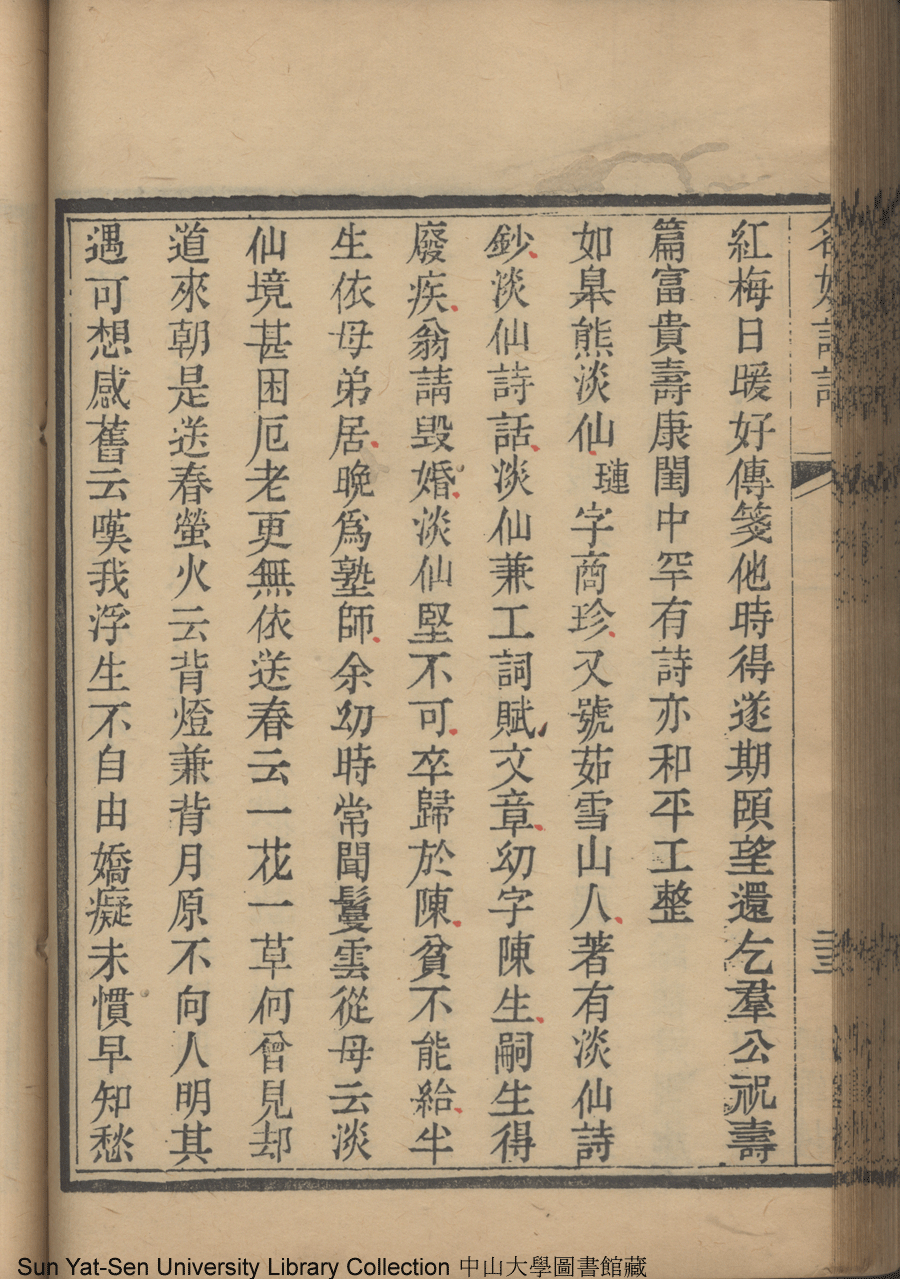 紅梅日暖好傳箋他時得遂期頤望還乞羣公祝壽
篇富貴壽康閨中罕有詩亦和平工整
如臯熊淡仙璉字商珍又號茹雪山人著有淡仙詩
鈔淡仙詩話淡仙兼工詞賦文章幼字陳生嗣生得
廢疾翁請毀婚淡仙堅不可卒歸於陳貧不能給半
生依母弟居晚爲塾師余幼時常聞鬘雲從母云淡
仙境甚困厄老更無依送春云一花一草何曾見却
道來朝是送春螢火云背燈兼背月原不向人明其
遇可想感舊云嘆我浮生不自由嬌癡未慣早知愁
Sun Yat-Sen University Library Collection 中山大學圖書館藏